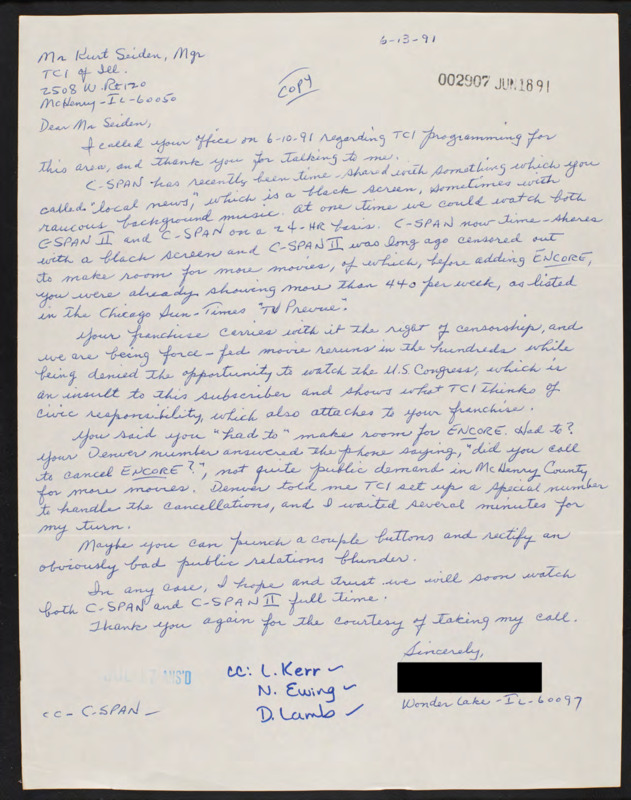 6-13-91
Mr Kurt Seiden, Mgr
TCI of Ill.
2508 W. Rt 120
McHenry-IL-60050
COPY
002907 JUN 18 91
Dear Mr Seiden,
I called your office on 6-10-91 regarding TCI programming for
this area, and thank you for talking to me.
C-SPAN has recently been time-shared with something which you
called "local news," which is a black screen, sometimes with
raucous background music. At one time we could watch both
C-SPAN II and C-SPAN on a 24-HR basis. C-SPAN now time-shares
with a black screen and C-SPAN II was long ago censored out
to make room for more movies, of which, before adding ENCORE,
you were already showing more than 440 per week, as listed
in the Chicago Sun-Times "TV Prevue".
Your franchise carries with it the right of censorship, and
we are being force-fed movie reruns in the hundreds while
being denied the opportunity to watch the U.S. Congress, which is
an insult to this subscriber and shows what TCI thinks of
civic responsibility, which also attaches to your franchise.
You said you "had to" make room for ENCORE. Had to?
Your Denver number answered the phone saying, "did you call
to cancel ENCORE?", not quite public demand in McHenry County
for more movies. Denver told me TCI set up a special number
to handle the cancellations, and I waited several minutes for
my turn.
Maybe you can punch a couple buttons and rectify an
obviously bad public relations blunder.
In any case, I hope and trust we will soon watch
both C-SPAN and C-SPAN II full time.
Thank you again for the courtesy of taking my call.
Sincerely,
Wonder Lake-IL-60097
JUL 17 ANS'D
cc: L. Kerr
N. Ewing
D. Lamb
cc- C-SPAN-